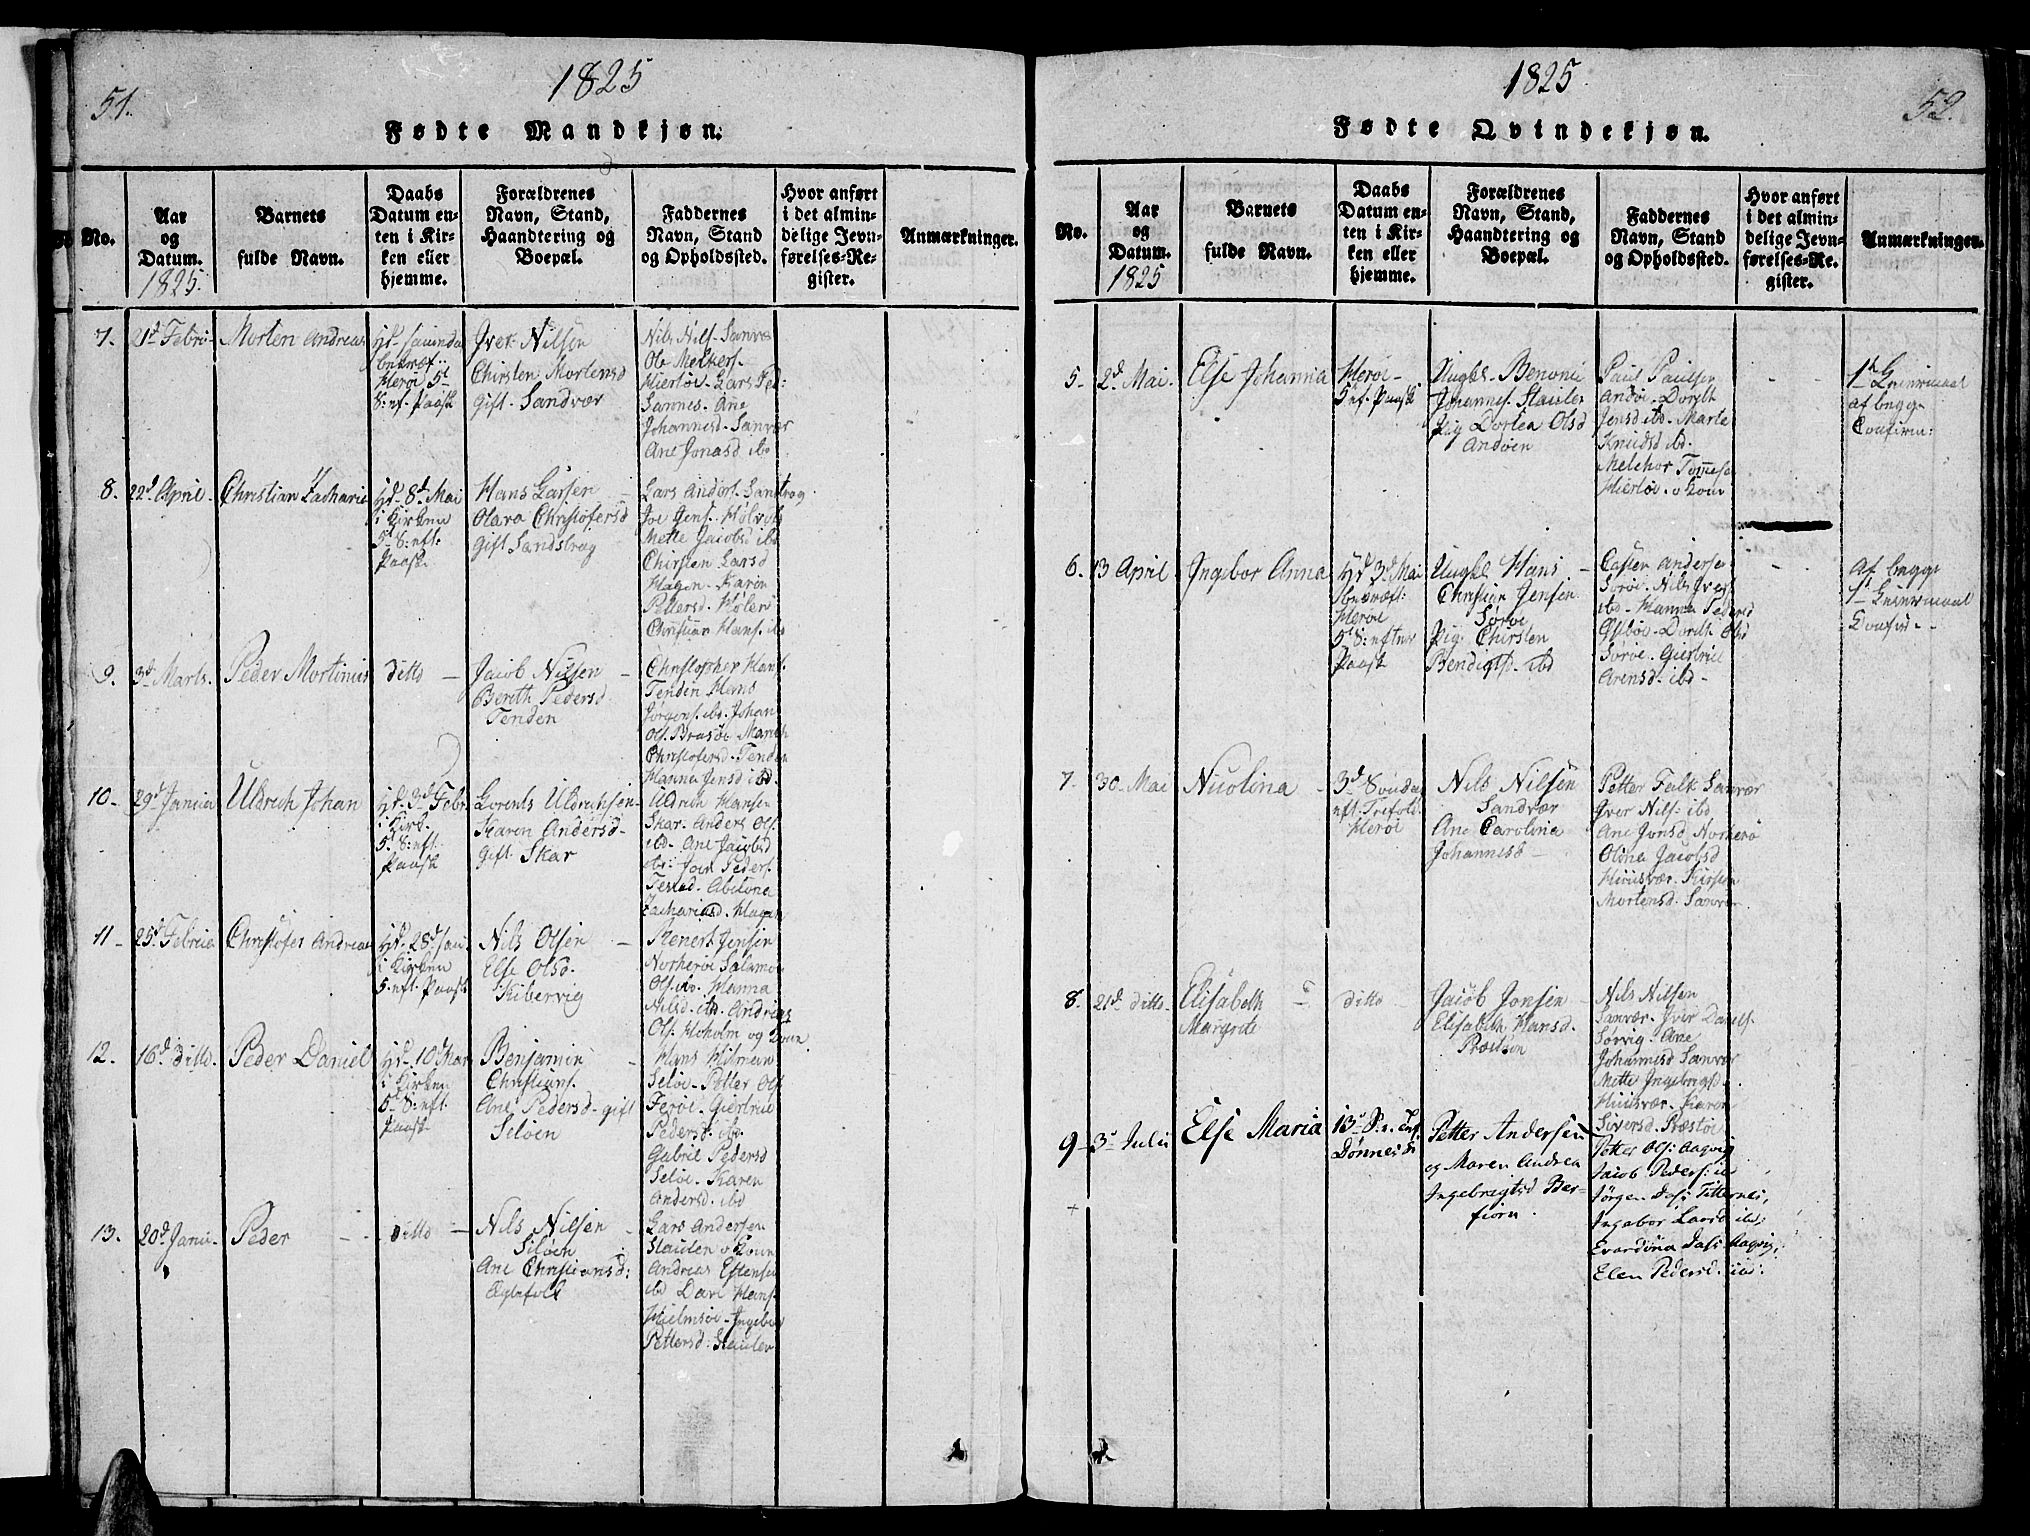 51.
1825
Fødte Mandkjøn.
No.
Aar
og
Datum.
1825.
Barnets
fulde Navn.
Daabs
Datum en-
ten i Kir-
ken eller
hjemme.
Forældrenes
Navn, Stand,
Haandtering og
Boepæl.
Faddernes
Navn, Stand
og Opholdssted.
Hvor anført
i det almin-
delige Jevn-
førelses-Re-
gister.
Anmærkninger.
7.
Morten Andreas
Herøi 5t
S: ef. Paask
Iver Nilsen
Chirsten Mortensd
Gift. Sandvær
Nils Nils. Sanvær
Ole
Hiertøe. Lars Ped:
Sannes. Ane
Johannesd. Sanvær
Ane Jonasd ibd
8.
22d April.
Christian Zacharie
Hd. 8d Mai
i Kirken
5t S: eft:
Paask
Hans Larsen
Olava Christofersd
Gift Sandstrag
Lars Anders. Sandstrag
Mette Jacobsd ibd
Chirsten Larsd
Hagen. Karen
Pettersd. Holen
Christian Hans. ibd
9.
3d Marts.
Peder Mortinus
ditto
Jacob Nilsen
Berith Pedersd
Tenden
Christopher Hans.
Tenden Hans
Jørgens. ibd. Johan
Ols. Brasøe Mareth
Christofersd. Tenden
Hanna Jensd ibd.
10-
29d Janua
Uldrich Johan
Hd. 3d Febr.
i Kirk.
5. S: eft.
Paask
Lorents Uldrichsen
Karen Andersd
gift. Skar
Uldrich Hansen
Skar. Anders Ols
ibd. Ane Jacobsd
Zachariasd. Hagen
11-
25d Februa
Christofer Andreas
i Kirken
5. eft. Paask
Nils Olsen
Else Olsd.
Kibervig
Renert Jensen
Norherøe Salamon
Ols. ibd. Hanna
Nilsd ibd. Andreas
Ols. Hoholm og Kone
12.
16d Ditto.
Peder Daniel
Hd. 10d Mar
i Kirken
5t S: eft
Paask
Benjamin
Christians.
Ane Pedersd. gift
Seløen
Seløe. Petter Ols
Ferøe. Giertrue
Pedersd. ibd.
Gabriel Pedersd
Seløe. Karen
Andersd. ibd
13.
20d Janu.
Peder
Ditto
Nils Nilsen
Seløen
Ane Christiansd:
Ægtefolk
Lars Andersen
Staulen og Kone
Andreas Estensen
ibd Hans.
Hielmsøe. Ingebor
Pettersd. Staulen
1825.
52.
Fødte Qvindekjøn.
No.
Aar
og
Datum.
1825
Barnets
fulde Navn.
Daabs
Datum en-
ten i Kir-
ken eller
hjemme.
Forældrenes
Navn, Stand,
Haandtering og
Boepæl.
Faddernes
Navn, Stand
og Opholdssted.
Hvor anført
i det almin-
delige Jevn-
førelses-Re-
gister.
Anmærkninger.
5.
2d Mai.
Else Johanna
Herøe
5 ef. Paask
Ungks. Benonie
Johannes. Staulen
Pig Dortea Olsd
Andøen
Paul Paulsen
Andøe. Dordt
Jensd ibd. Marte
Knudsd ibd.
Melchor Tønnesen
Hiertøe. og Kone
1ste Leiermaal
af begge
Confirm:
6.
13 April
Ingebor Anna
Hd 3d Mai
Herøe
5t S: efter
Paask
Ungks Hans
Christian Jensen
Sørøe
Pig. Chirsten
Bendigtsd. ibd
Casten Anders.
Sørøe. Nils Ivers
ibd. Hanna Pedersd
Dordt Olsd
Sørøe. Giertrue
Arensd. ibd
Af begge
1st Leiermaal
Confird.
7.
30. Mai
Nicolina
3d Søndag
eft. Trefold.
Herøe
Nils Nilsen
Sandvær
Ane Carolina
Johannesd
Petter Falk Sanvær
Iver Nils. ibd
Ane Jonsd Norherø
Oldna Jacobsd
Huusvær. Kirsten
Mortensd. Sanvær
8.
21d ditto
Elisabeth
Margrete
ditto
Jacob Jonsen
Elisabeth Hansd.
Præstøen
Nils Nilsen
Sanvær. Iver Daniels.
Sørvig. Ane
Johannesd Sanvær
Mette Ingeborgsd.
Huusvær. Karen
Siversd. Præstøe
9
3d Julii
Else Maria
13d S. e. Trf.
Dønnes K
Petter Andersen
og Maren Andrea
Ingebrigtsd Ber-
fiorn.
Petter Ols: Aagvig
Jacob Peders: ibd
Jørgen Jaf: Titternes,
Ingebor Larsd ibd;
Evardina Jafs: Aagvig;
Elen Pedersd. ibd: